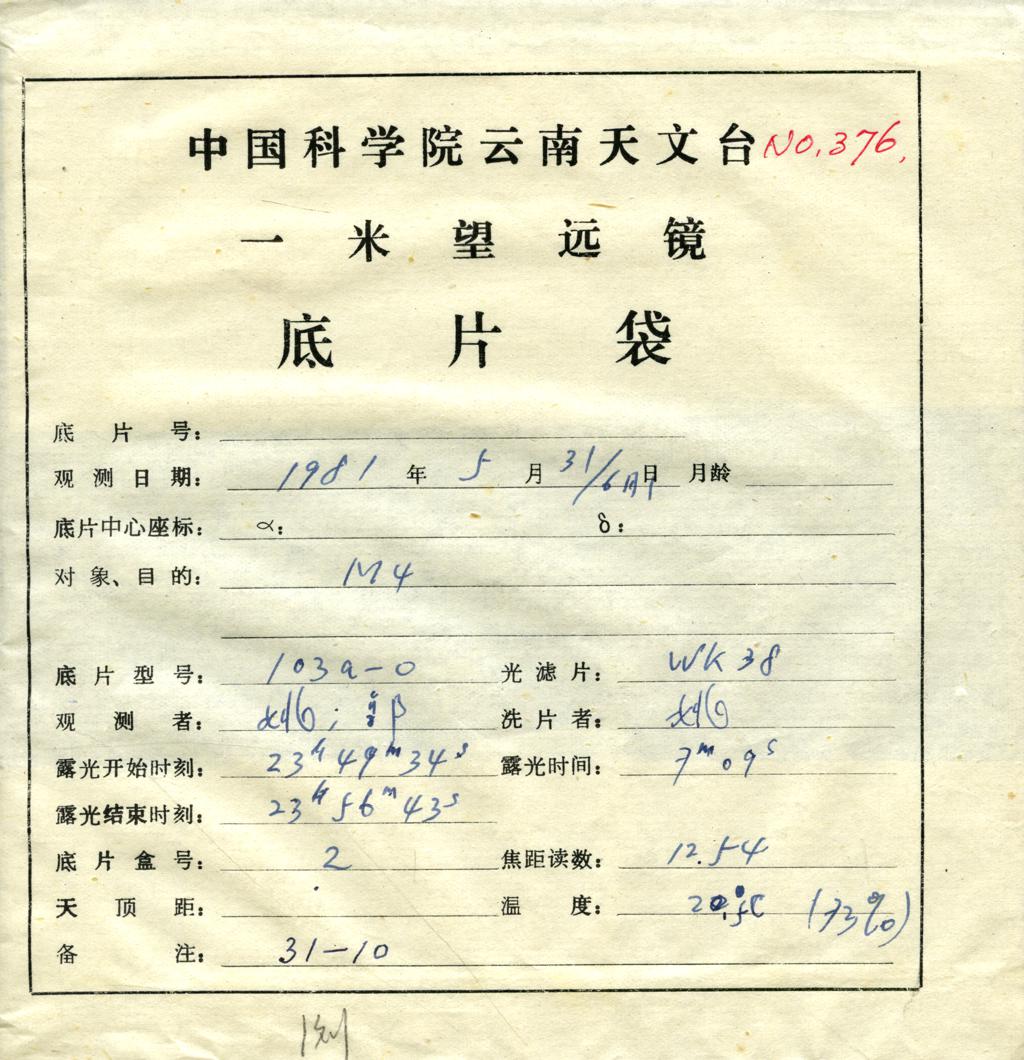 中国科学院云南天文台 NO.376.
一米望远镜
底片袋
底片号:
观测日期: 1981年5月31/6月1日 月龄
底片中心座标: α: δ:
对象、目的: M4
底片型号: 103a-0 光滤片: WK38
观测者: 洗片者:
露光开始时刻: 23h49m34s 露光时间: 7m09s
露光结束时刻: 23h56m43s
底片盒号: 2 焦距读数: 12.54
天顶距: 温度: 20.5°C (73%)
备注: 31-10